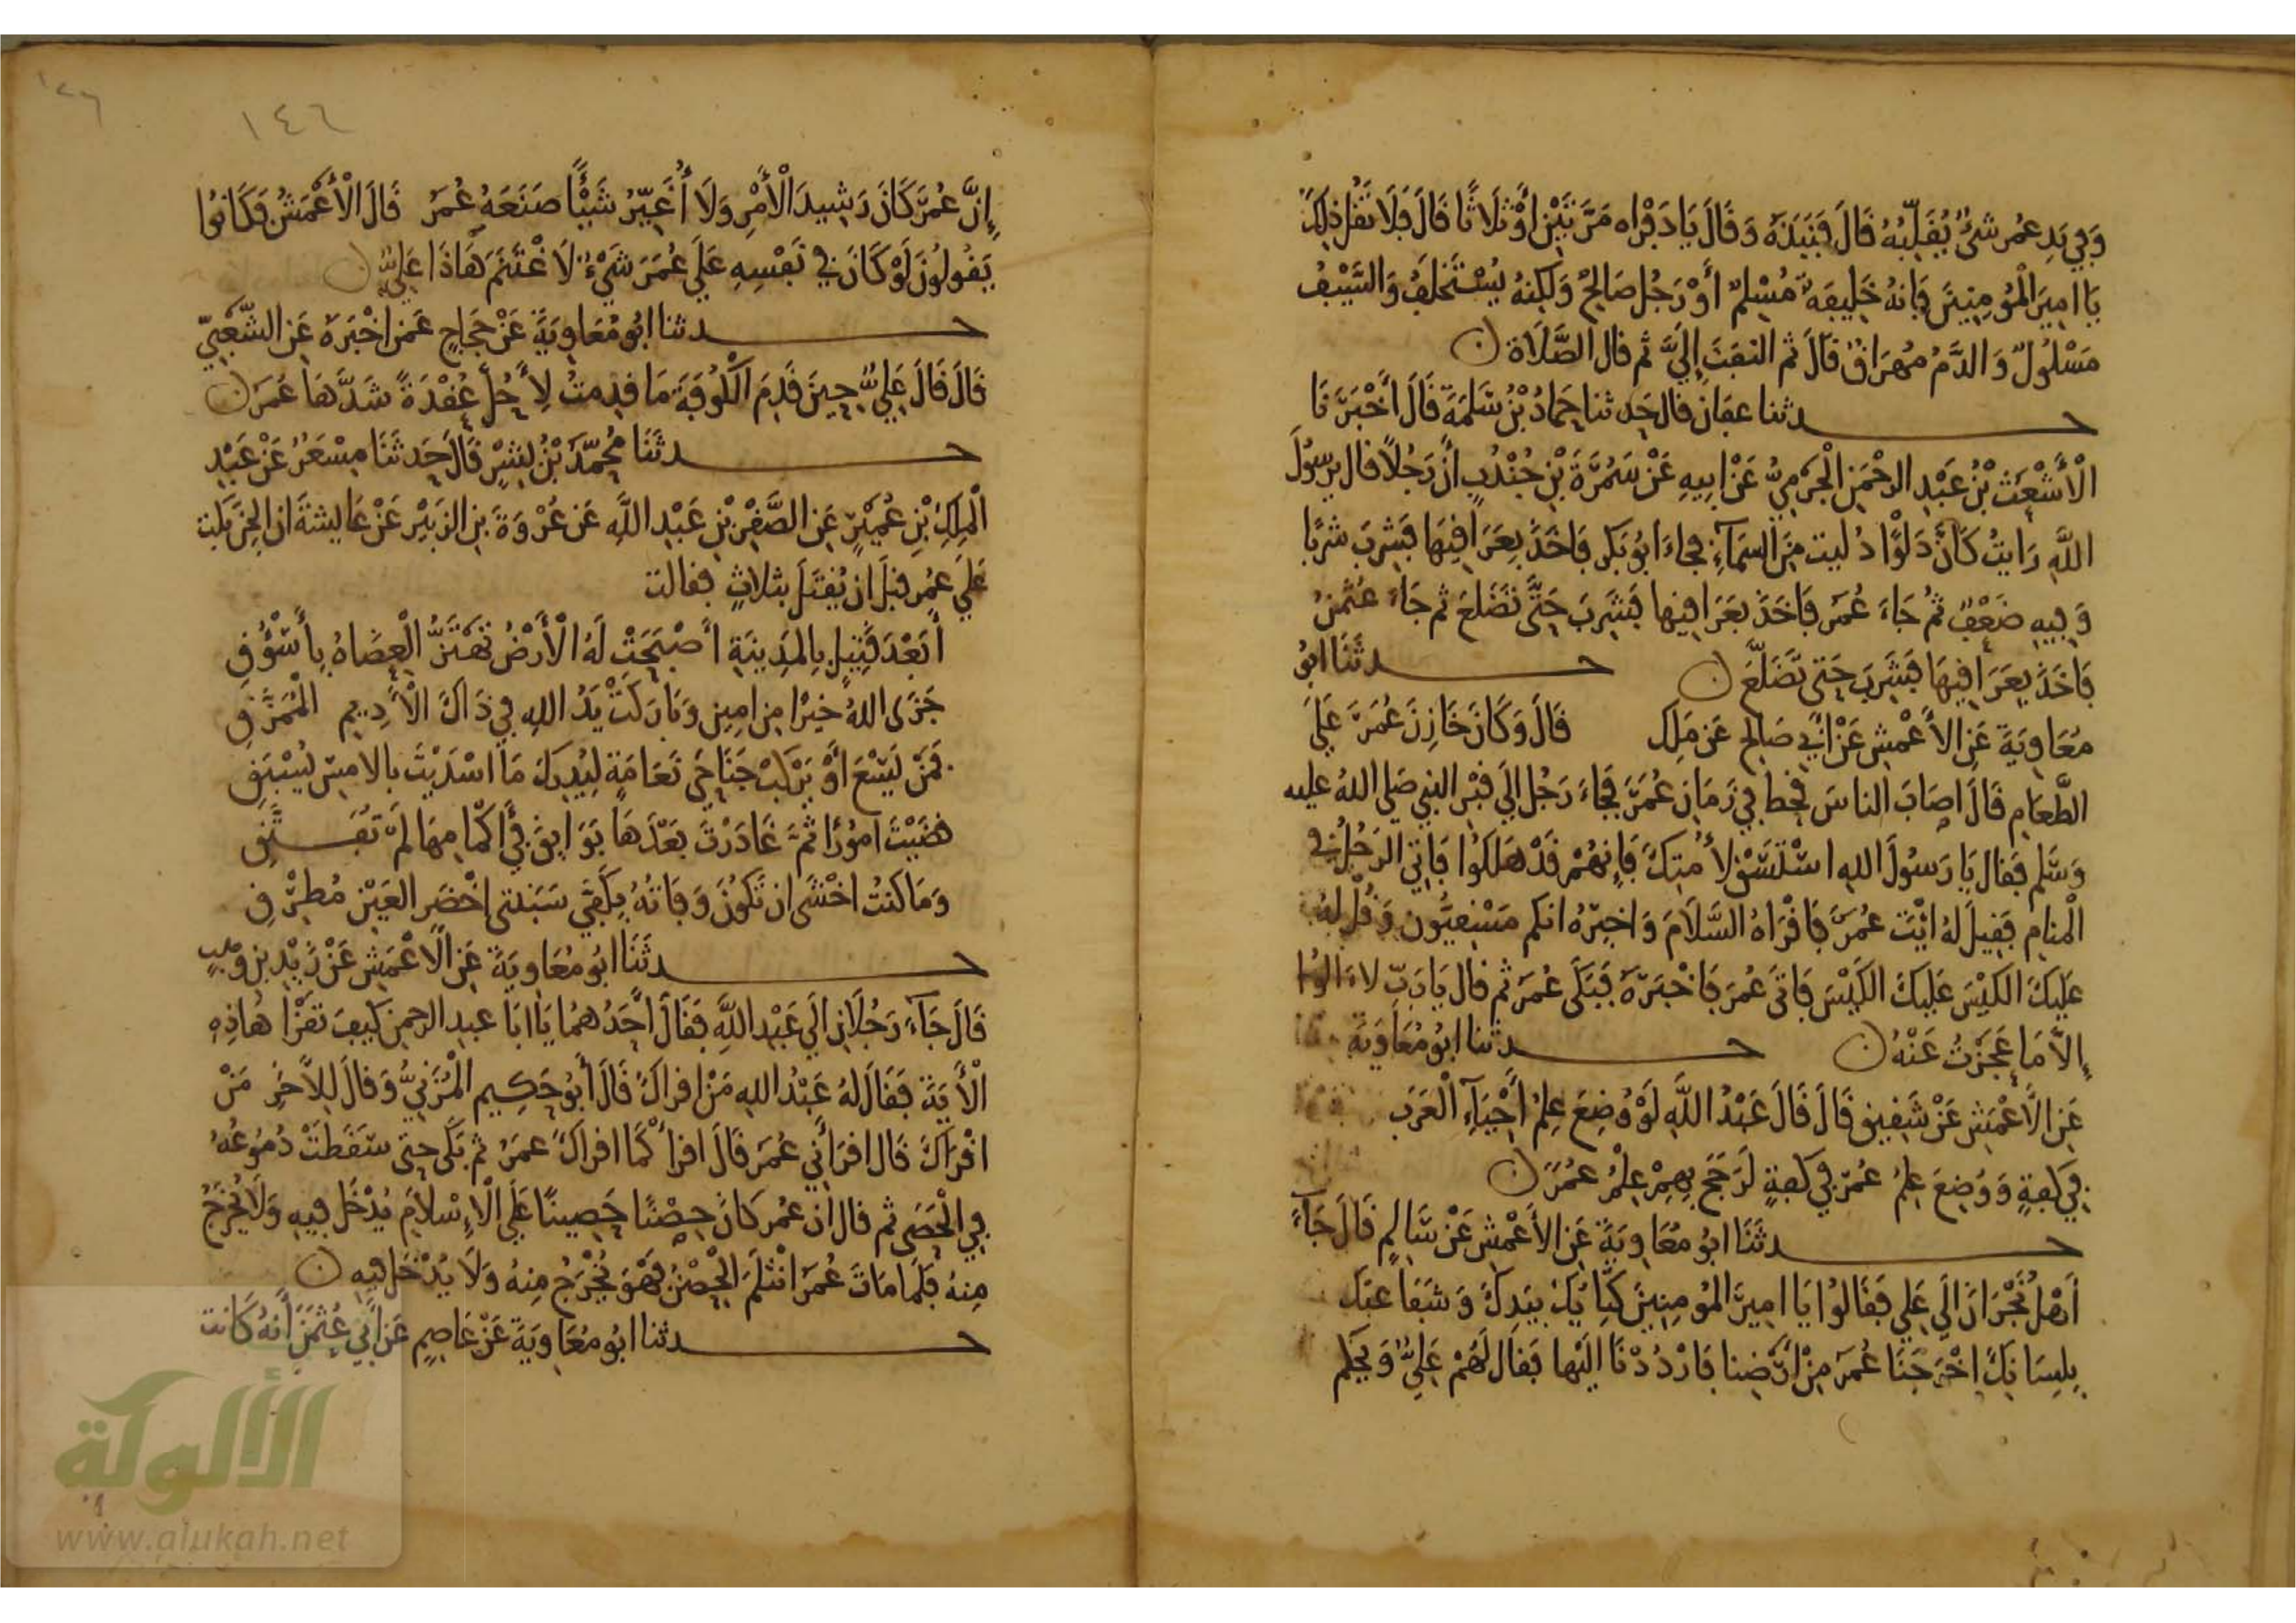 وَفِي يَدِ عُمر شَيْءٌ يُقَلِّبُهُ قَالَ فَنَبَذَهُ وَقَالَ يَا دَفْرَاه مَرَّتَيْنِ أَوْ ثَلَاثًا قَالَ فَلَا تَقُل ذَلِكَ
يَا امِيرَ الْمُومِنِينَ فَإِنهُ خَلِيفَةٌ مُسْلِمٌ أَوْ رَجُل صَالِحٌ وَلَكِنهُ يُسْتَخْلَفُ وَالسَّيْفُ
مَسْلُولٌ وَالدَّمُ مُهَرَاقٌ قَالَ ثم التفتَ إِلَيَّ ثم قال الصَّلَاة ن
حدثنا عفان قال حَدثنا حَمادُ بْنُ سَلَمَةَ قَالَ أَخْبَرَنَا
الْأَشْعَث بْنُ عَبْدِ الرحْمَنِ الْجَرْمِيُّ عَنْ ابِيهِ عَنْ سَمُرَةَ بْنِ جُنْدُبٍ انَّ رَجُلًا قال يرسولَ
اللَّهِ رَايتُ كَأَنَّ دَلْوًا دُليت مِنَ السمَآءِ فجاءَ ابُو بَكر فَاخَذَ بِعَرَاقِيهَا فَشرِبَ شربًا
وَفِيهِ ضَعْفٌ ثمُ جَاءَ عُمَر فَاخَذَ بعَرَاقيها فَشَرِبَ حَتَّى تَضَلعَ ثم جَاءَ عثمنُ
فَاخَذَ بِعَرَاقِيهَا فَشَرِبَ حَتى تَضَلَّعَ ن حدثَنَا ابُو
مُعَاوِيَةَ عَنِ الأَعْمَشِ عَنْ ابي صَالِح عَن مَلِكِ قَالَ وَكَانَ خَازِنَ عُمَرَ عَلَى
الطَّعَامِ قَالَ اصَابَ الناسَ قحط فِي زَمَانِ عُمَرَ فَجَاءَ رَجُل إلَى قبْر النبي صَلى اللهُ عليه
وَسَلم فقال يَا رَسُولَ اللهِ اسْتَسْقِ لأُمتِكَ فَإِنهُمْ قَدْ هَلكُوا فَاتِيَ الرَجُلُ في
الْمنَامِ فَقِيلَ لهُ ايْتَ عُمَرَ فَاقْرَاهُ السَّلَامَ وَاخبِرْهُ انكم مَسْتَقِيمُون وَقُلْ لهُ
عَلَيكَ الكَيْسَ عَلَيكَ الكَيْسَ فَاتَى عُمَرَ فَاخْبَرَهُ فَبَكَى عُمَر ثم قال يَا رَبِّ لاءَالوُا
إِلاَّ مَا عَجَزْتُ عَنْهُ ن حدثنا ابُو مُعَاوِيَةَ
عَنِ الأَعْمَشِ عَنْ شَقِيقٍ قَالَ قَالَ عَبْدُ اللَّهِ لَوْ وُضِعَ عِلمُ أَحْيَآءِ الْعَرَبِ
فِي كَفةٍ وَوُضِعَ عِلمُ عُمَرَ فِي كَفةٍ لَرَجَحَ بِهِمْ عِلْمُ عُمَرَ ن
حدثَنَا ابُو مُعَاوِيَةَ عَنِ الأَعْمَشِ عَنْ سَالِمٍ قَالَ جَآءَ
اهْلُ نَجْرَانَ إلَى عَلِي فَقَالوُا يَا امِيرَ الْمُومِنِينَ كِتَابُكَ بيَدِكَ وَشَفَاعَتكَ
بِلِسَانِكَ اخْرَجَنَا عُمَرَ مِنْ ارْضِنا فَارْدُدْنَا الَيْها فَقالَ لَهُمْ عَلِيٌّ وَيْحَكم
١٤٦
إِنَّ عُمَرَ كَانَ رَشِيدَ الْأَمْرِ وَلَا أُغَيِّرُ شَيْئًا صَنَعَهُ عُمَرُ قَالَ الْأَعْمَشُ فكَانوُا
يَقُولُونَ لَوْ كَانَ في نَفْسِهِ عَلَى عُمَرَ شَيْءٌ لَاغْتَنَمَ هَاذَا عَلِيٌّ ن
حدثنا ابُو مُعَاوِيَةَ عَنْ حَجَاجٍ عَمن اخْبَرَهُ عَنِ الشَّعْبِيّ
قَالَ قَالَ عَلِيٌّ حِينَ قَدِمَ الْكُوفَةَ مَا قدِمتُ لأَحُلَّ عُقْدَةً شَدَّهَا عُمَرَ ن
حدثَنَا مُحمَّدُ بْنُ بِشْرٍ قَالَ حَدثَنَا مِسْعَرُ عَنْ عَبْدِ
الْمَلِكِ بْنِ عُمَيْرٍ عَنِ الصَّقْرِ بْنِ عَبْدِ اللَّهِ عَن عُرْوَةَ بنِ الزبَيْر عَنْ عَايشةَ ان الجِنَّ بَكت
عَلَى عُمر قبلَ ان يُقتَلَ بثلاثٍ فقالت
أَبَعْدَ قَتِيلٍ بِالمَدِينَةِ أَصْبَحَتْ لَهُ الْأَرْضُ تَهْتَزُّ الْعِضَاهُ بِأَسْؤُقِ
جَزَى اللهُ خَيرًا من امِينٍ وَبَارَكَتْ يَدُ اللهِ فِي ذَاكَ الْأَدِيمِ الْمُمَزَّقِ
فَمَنْ يَسْعَ أَوْ يَرْكَبْ جَنَاحَيْ نَعَامَةٍ لِيُدرِكَ مَا اسْدَيْتَ بالامسِ يُسْبَقِ
قضَيْتَ امُورًا ثمَّ غَادَرْتَ بَعْدَهَا بَوَايِقَ فِي أَكْمَامِهَا لَمْ تُفَتَّقِ
وَمَا كنتُ اخْشَى ان تَكُونَ وَفَاتُهُ بِكَفَّيْ سَبَنتى اخْضَرِ العَيْنِ مُطرِقِ
حدثَنَا ابُو مُعَاوِيَةَ عَنِ الأَعْمَشِ عَنْ زَيْدِ بنِ وَهْبٍ
قَالَ جَآءَ رَجُلَانِ إلَى عَبْدِ اللَّهِ فَقَالَ أَحَدُ هُمَا يَا ابَا عبدِ الرحمنِ كَيفَ تَقْرَأُ هَاذِهِ
الْأَيَةَ فَقَالَ لهُ عَبْدُ اللهِ مَنْ اقراكَ قَالَ أَبُو حَكِيمٍ الْمُزَنِيُّ وَقالَ لِلأَخَرِ مَنْ
اقْرَاكَ قال اقرَانِي عُمَرَ قَالَ اقرَأْ كَمَا اقراكَ عمَرُ ثم بَكَى حتى سَقَطَتْ دُمُوعُهُ
فِي الْحَصَى ثم قال ان عُمَر كَانَ حِصْنًا حَصِينًا عَلَى الْإِسْلَامِ يُدْخَل فِيهِ وَلَا يُخْرَجُ
مِنهُ فَلَمَا مَاتَ عُمَرَ انْثلَمَ الْحِصْنُ فهْوَ يُخْرَجُ مِنهُ وَلَا يُدْخَل فِيهِ ن
حدثنا ابُو مُعَاوِيَةَ عَنْ عَاصِمٍ عَن أَبِي عُثمَنَ أَنهُ كَانت
الألوكة
www.alukah.net